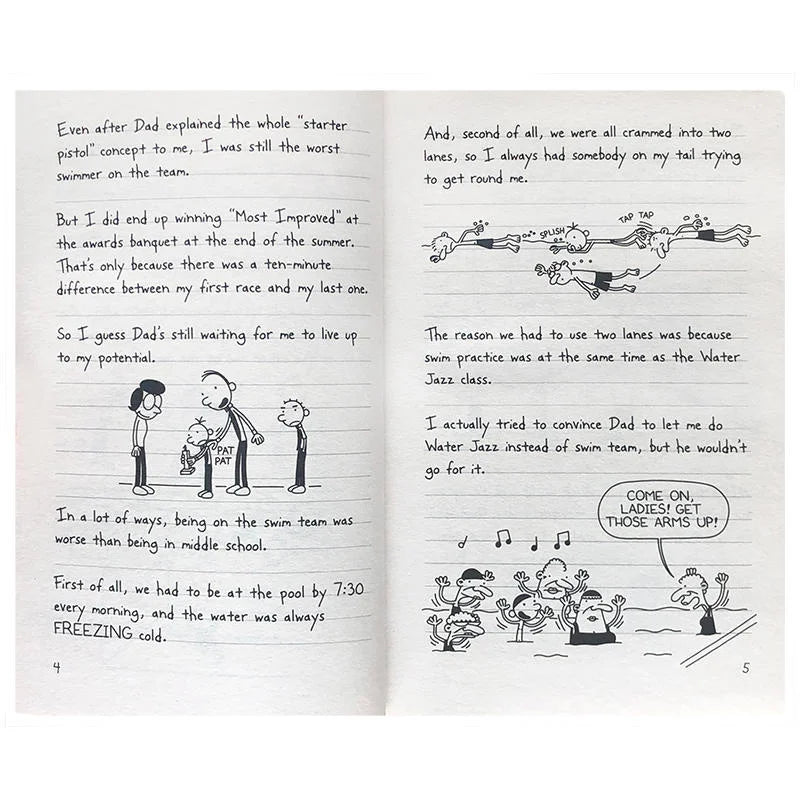 Even after Dad explained the whole "starter
pistol" concept to me, I was still the worst
swimmer on the team.
But I did end up winning "Most Improved" at
the awards banquet at the end of the summer.
That's only because there was a ten-minute
difference between my first race and my last one.
So I guess Dad's still waiting for me to live up
to my potential.
PAT
PAT
In a lot of ways, being on the swim team was
worse than being in middle school.
First of all, we had to be at the pool by 7:30
every morning, and the water was always
FREEZING cold.
4
And, second of all, we were all crammed into two
lanes, so I always had somebody on my tail trying
to get round me.
SPLISH
TAP TAP
The reason we had to use two lanes was because
swim practice was at the same time as the Water
Jazz class.
I actually tried to convince Dad to let me do
Water Jazz instead of swim team, but he wouldn't
go for it.
COME ON,
LADIES! GET
THOSE ARMS UP!
5